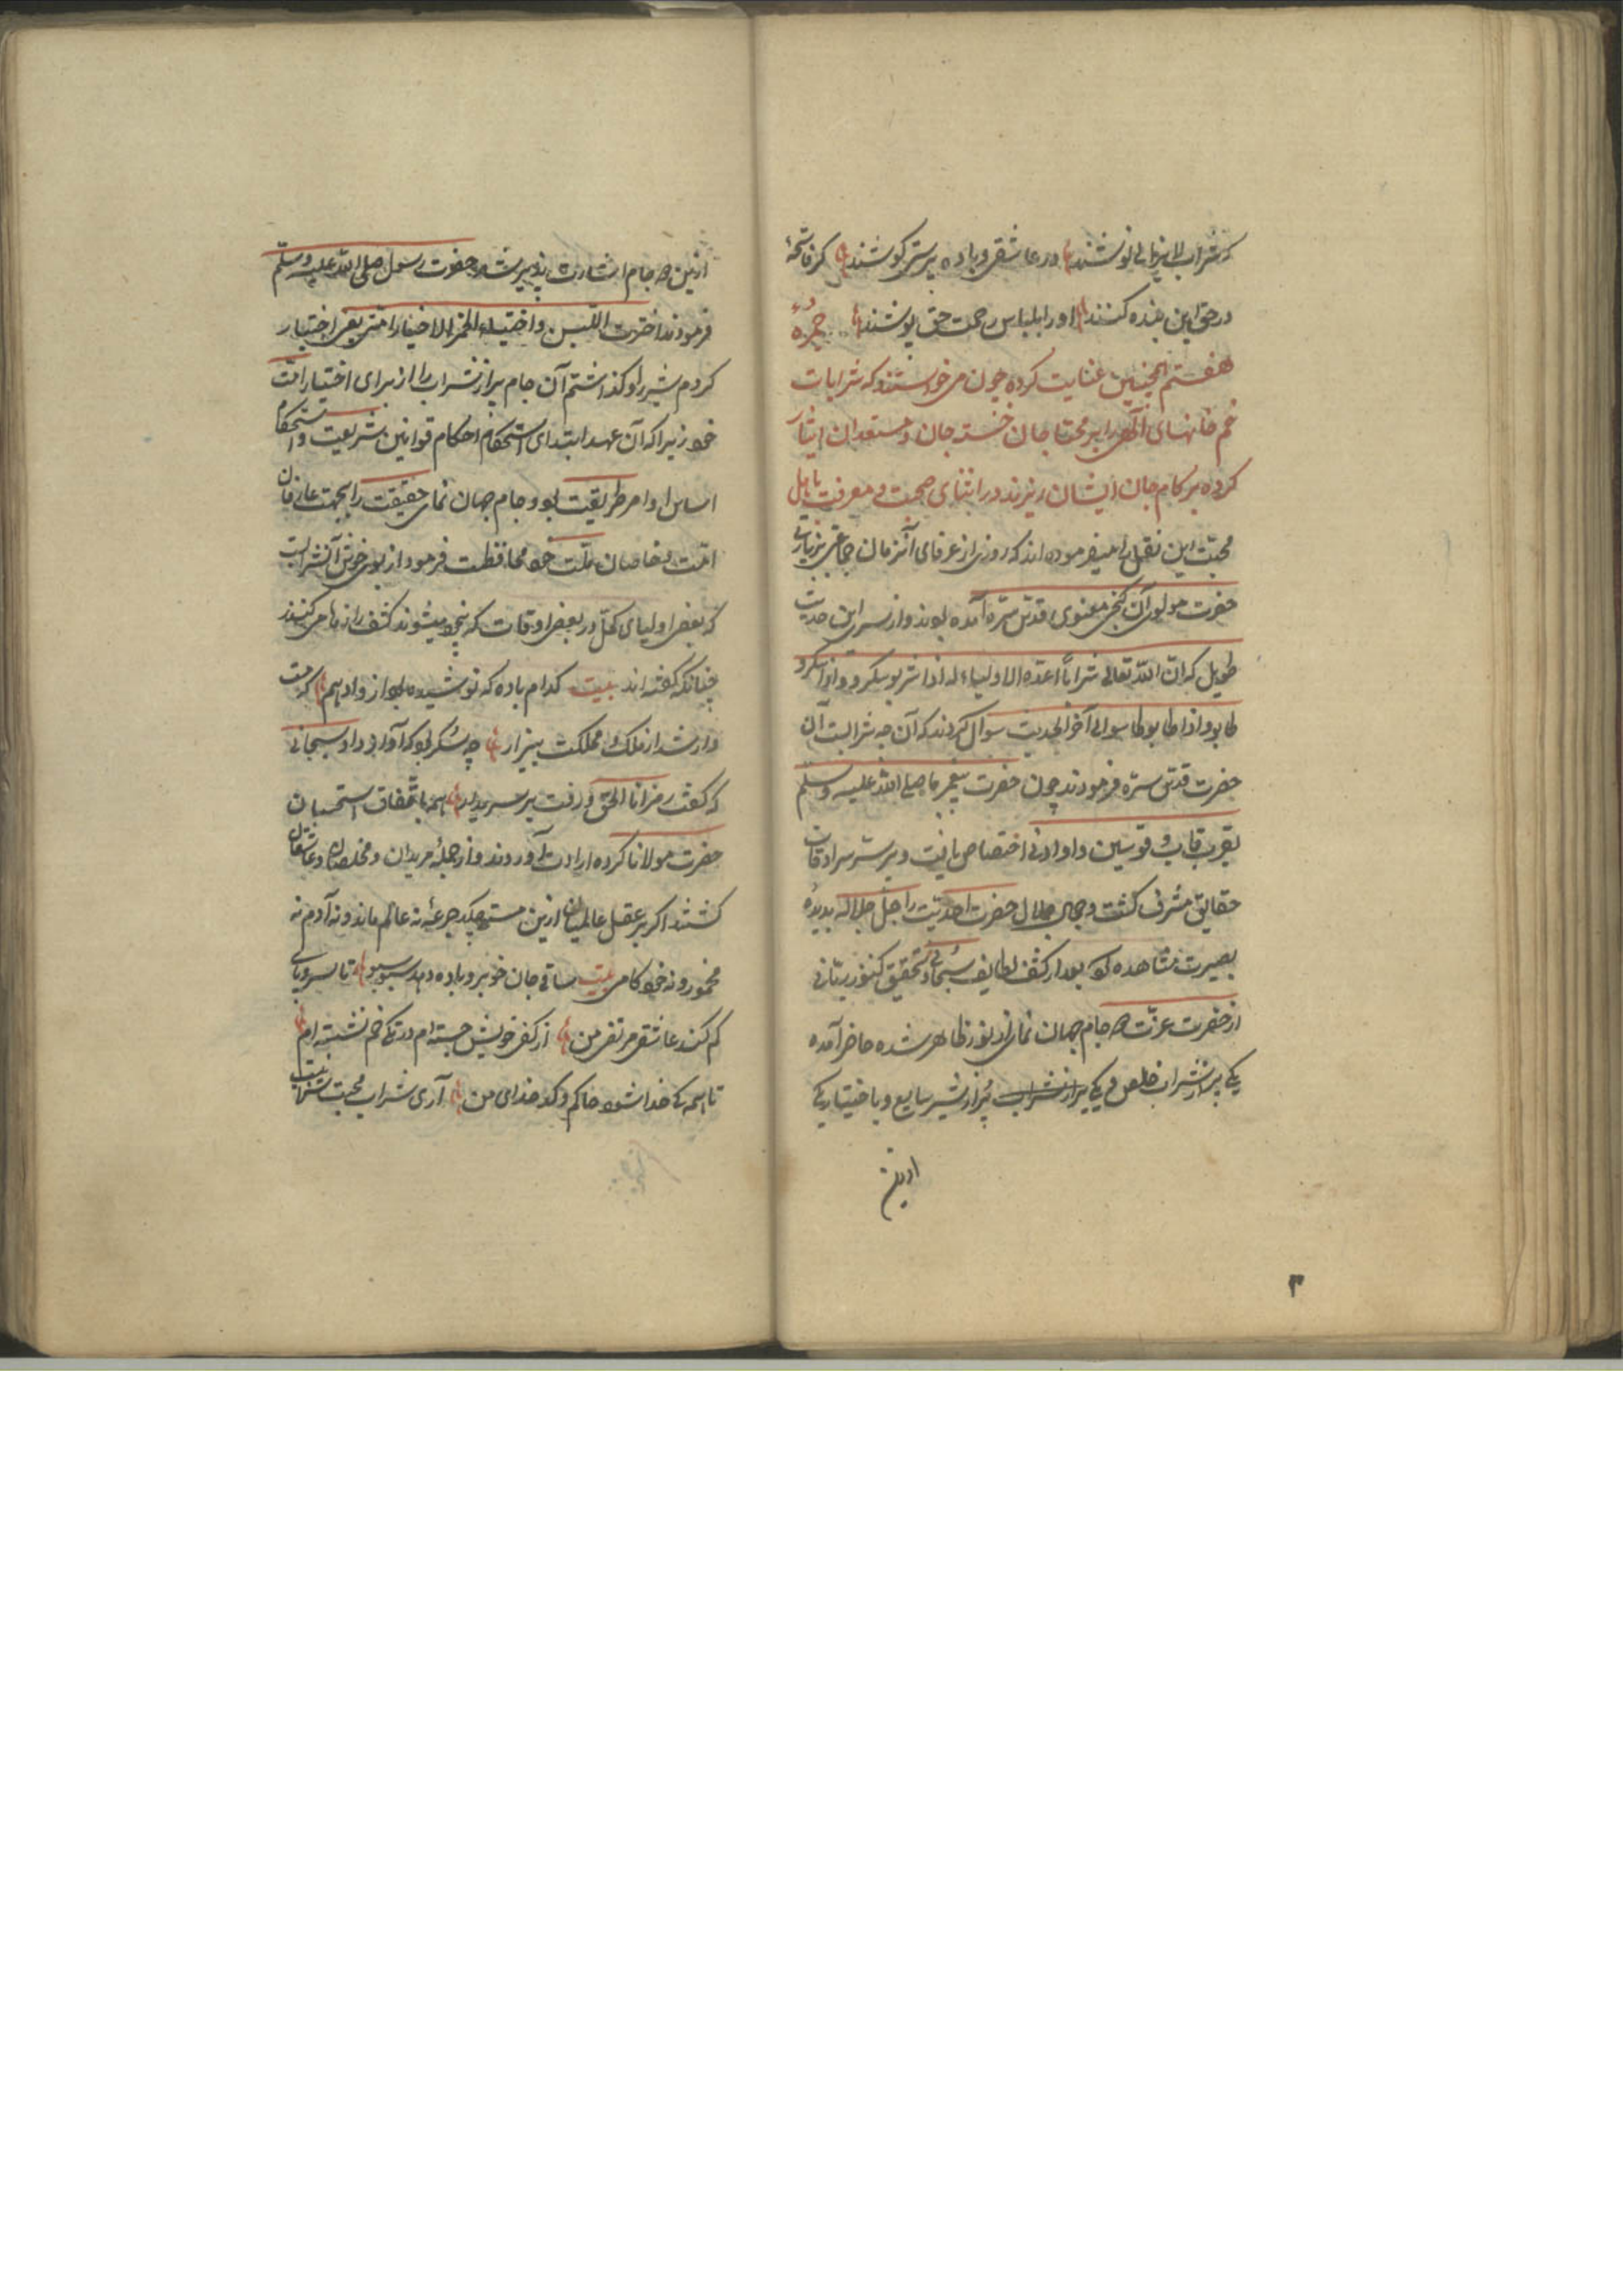 که شراب لایزالی نوشند در عاشقی و باده پرستی کوشند کر فاتحهٔ
در حق این بنده کنند او را بلباس رحمت حق پوشند خمرهٔ
هفتم اینچنین عنایت کرده چون می خواستند که شرابات
خم خانهای الهی را بر محتاجان خسته جان و مستعدان ایثار
کرده بر کام جان ایشان ریزند در ابتدای صحبت و معرفت باهل
محبت این نقل را میفرموده اند که روزی از عرفای آنزمان جماعتی بزیارت
حضرت مولوی آن کنج معنوی قدس سره آمده بودند و از سر این حدیث
طویل که ان الله تعالی شرابا اعده لاولیاءه اذا شربوا سکروا و اذا سکروا
طابوا و اذا طابوا طاسوا الی آخر الحدیث سوال کردند که آن چه شرابست آن
حضرت قدس سره فرمودند چون حضرت پیغمبر ما صلی الله علیه وسلم
بقرب قاب قوسین و او ادنی اختصاص یافت و بر سر سرادقات
حقایق مشرف کشت و جمال جلال حضرت احدیت را جل جلاله بدیدهٔ
بصیرت مشاهده کرد بعد از کشف لطایف سبحانی و تحقیق کنوز ربانی
از حضرت عزت دو جام جهان نمای از نور ظاهر شده حاضر آمده
یکی پر از شراب خالص و یکی پر از شراب پر از شیر سایغ و باختیار یکی
ازین
۳
ازین دو جام اشارت پذیر شد حضرت رسول صلی الله علیه وسلم
فرمودند اخترت اللبن و اختبیت الخمر لاخیار امتی یعنی اختیار
کردم شیر را و کذاشتم آن جام پر از شراب را از برای اختیار امت
خود زیرا که آن عهد ابتدای استحکام احکام قوانین شریعت و استحکام
اساس اوامر طریقت بود و جام جهان نمای حقیقت را بجهت عارفان
امت و خاصان ملت خود محافظت فرمود از بوی خوش آن شرابست
که بعضی اولیای کمل در بعضی اوقات که بیخود میشوند کشف رازها می کنند
چنانکه کفته اند بیت کدام باده که نوشیده بود از و ادهم که مست
وار شد از ملک و مملکت بیزار چه سکر بود که آواز داد سبحانی
که کفت رمز انا الحق و رفت بر سر دار همه باتفاق استحسان
حضرت مولانا کرده ارادت آوردند و از جملهٔ مریدان و مخلصان و عاشقان
کشتند اکر بر عقل عالمیان ازین مستی چکد جرعهٔ نه عالم ماند و نه آدم نه
مخمور و نه خودکامی بیت ساقی جان خوبرو باده دهد سبو سبو تا سر و پای
کم کند عاشق مرتضی من از کف خویش جسته ام در تک خم نشسته ام
تا همه کی خدا شود حاکم و کدخدای من آری شراب محبت شراب